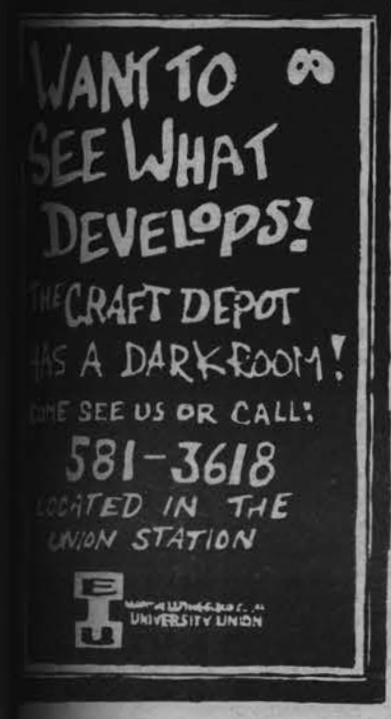 WANT TO
SEE WHAT
DEVELOPS?
THE CRAFT DEPOT
HAS A DARKROOM!
COME SEE US OR CALL:
581-3618
LOCATED IN THE
UNION STATION
EIU
UNIVERSITY UNION